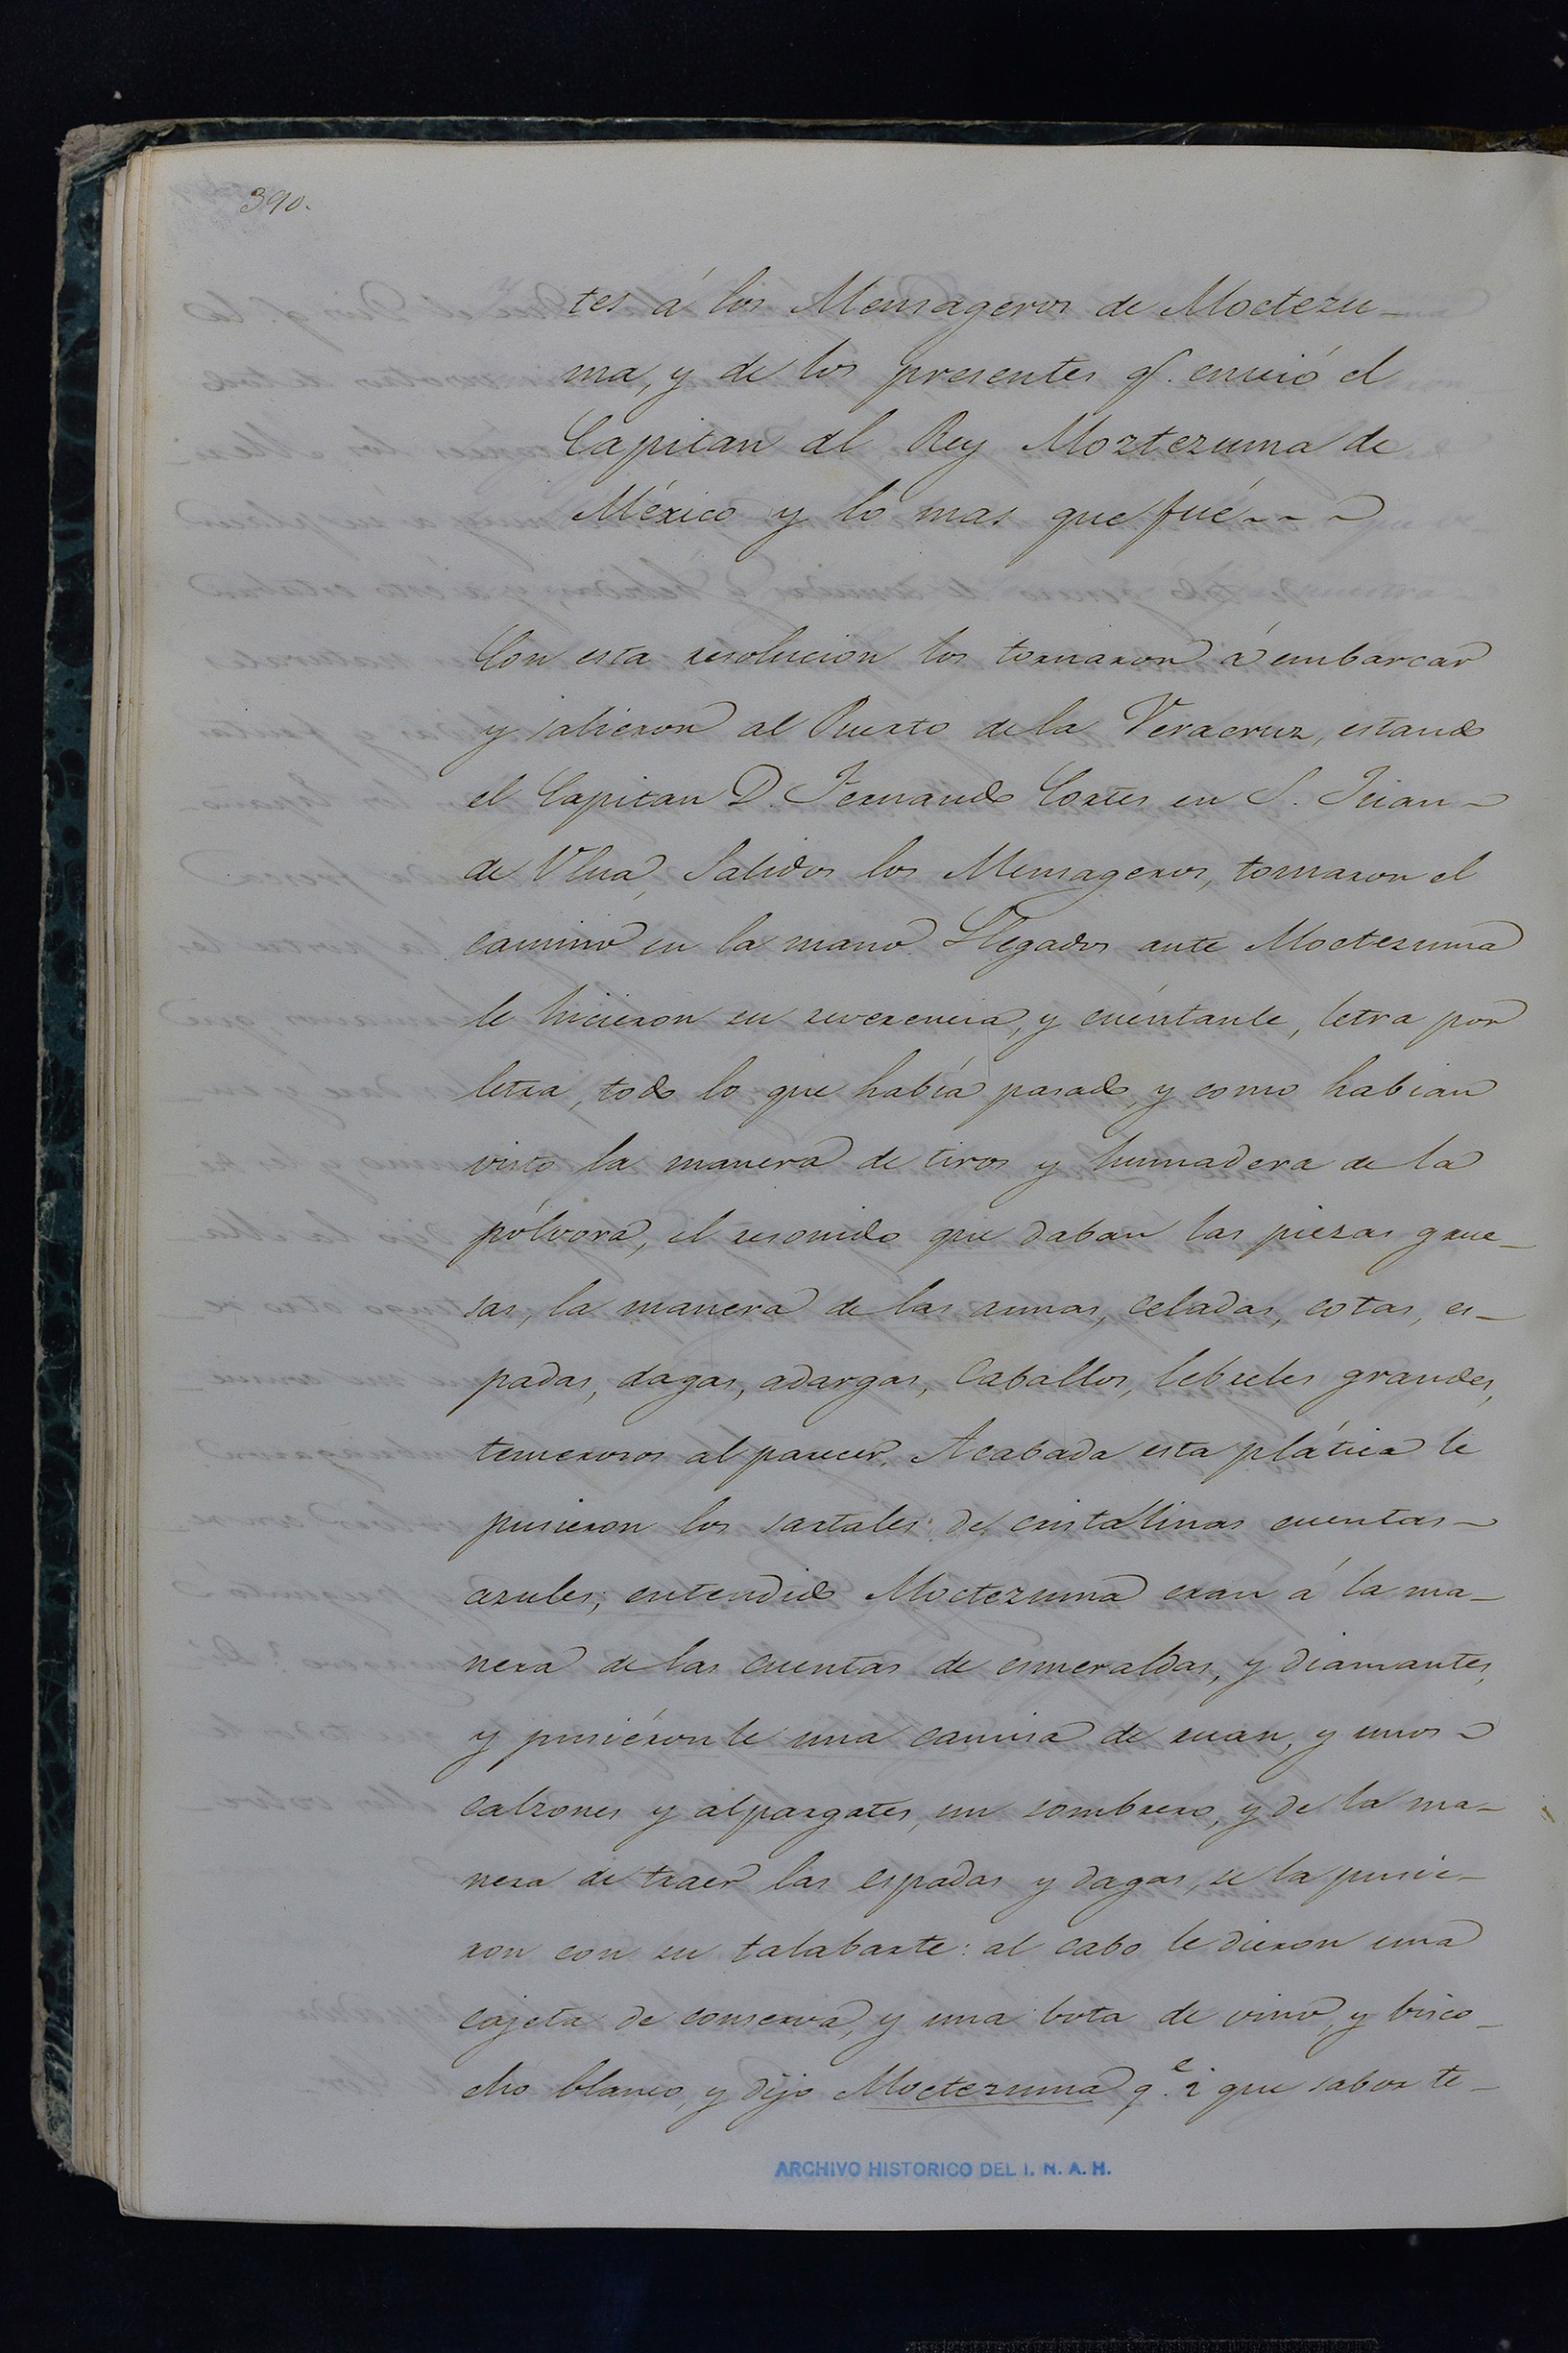 390.
tes á los Mensageros de Moctezu-
ma, y de los presentes q.e envió el
Capitan al Rey Moztezuma de
México y lo mas que fué - - -
Con esta resolucion los tornaron á embarcar
y salieron al Puerto de la Veracruz, estando
el Capitan D. Fernando Cortes en S. Juan-
de Vlua, Salidos los Mensageros, tomaron el
camino en la mano. Llegados ante Moctezuma
le hicieron su reverencia, y cuéntanle, letra por
letra, todo lo que había pasado, y como habian
visto la manera de tiros y humadera de la
pólvora, el resonido que daban las piezas grue-
sas, la manera de las armas, celadas, cotas, es-
padas, dagas, adargas, Caballos, lebreles grandes,
temerosos al parecer. Acabada esta plática le
pusieron los sartales de cristalinas cuentas-
azules; entendido Moctezuma eran á la ma-
nera de las cuentas de esmeraldas, y diamantes,
y pusiéronle una camisa de ruan, y unos-
calzones y alpargates, un sombrero, y de la ma-
nera de traer las espadas y dagas, se la pusie-
ron con su talabarte: al cabo le dieron una
cajeta de conserva, y una bota de vino, y bisco-
cho blanco, y dijo Moctezuma q.e ¿ que sabor te-
ARCHIVO HISTORICO DEL I. N. A. H.